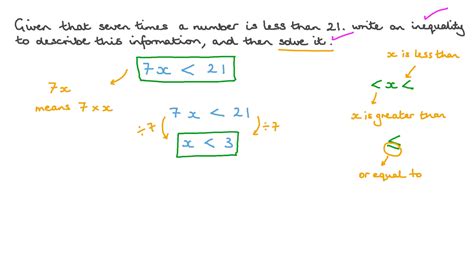 Given that seven times a number is less than 21. write an inequality
to describe this infomation, and then solve it.
7x < 21
7x
means 7 × x
7x < 21
÷7
÷7
x < 3
x is less than
< x <
x is greater than
≤
or equal to